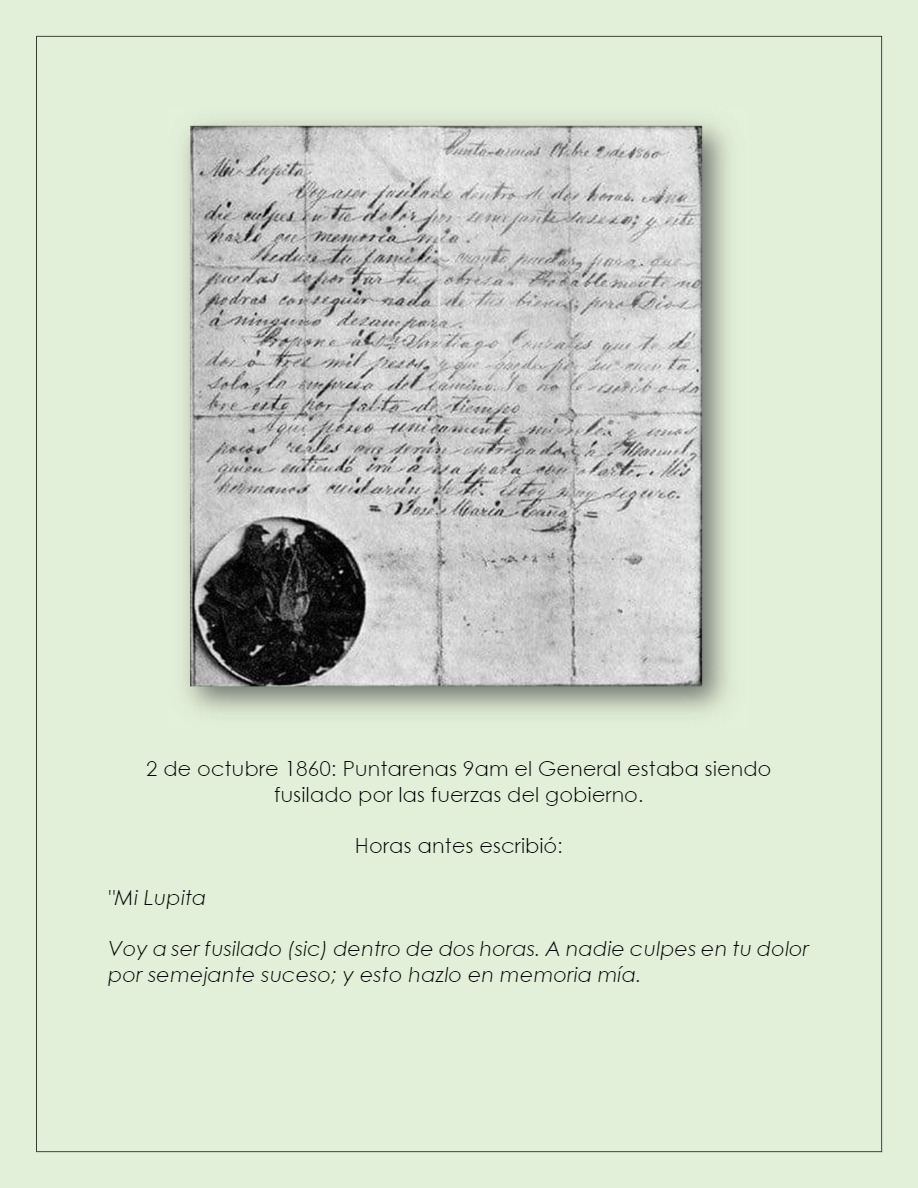 Punta-arenas Otbre 2 de 1860
Mi Lupita
Voy a ser fusilado dentro de dos horas. A na
die culpes en tu dolor por semejante suseso; y esto
hazlo en memoria mia.
Reduce tu familia cuanto puedas, para que
puedas soportar tu pobresa. Probablemente no
podras conseguir nada de tus bienes; pero Dios
á ninguno desampara.
Propone á Dn. Santiago Gonzales que te dé
dos ó tres mil pesos, y que quede por su cuenta
sola, la empresa del camino. Yo no le escribo so
bre esto por falta de tiempo
Aquí poseo unicamente mi reloj y unos
pocos reales que serán entregados á Manuel,
quien entiendo irá á esa para consolarte. Mis
hermanos cuidarán de ti. Estoy muy seguro.
= José Maria Cañas =
2 de octubre 1860: Puntarenas 9am el General estaba siendo
fusilado por las fuerzas del gobierno.
Horas antes escribió:
"Mi Lupita
Voy a ser fusilado (sic) dentro de dos horas. A nadie culpes en tu dolor
por semejante suceso; y esto hazlo en memoria mía.